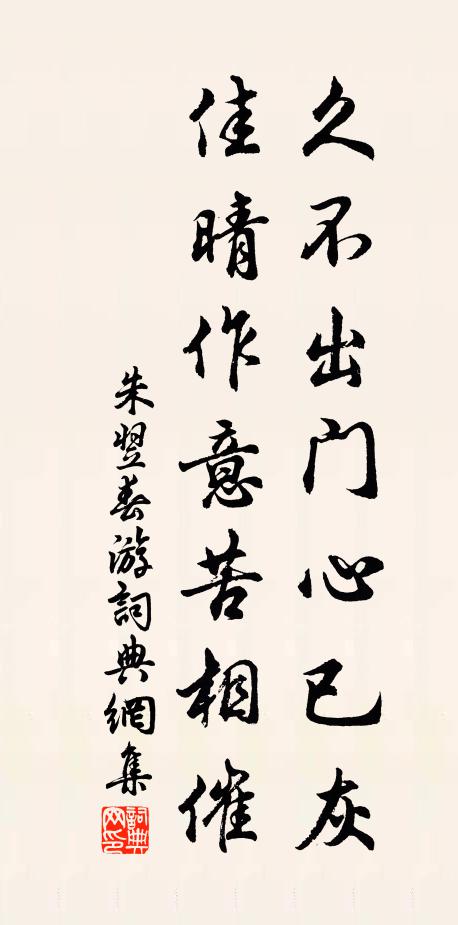 久不出門心已灰
佳晴作意苦相催
朱翌春游詞典網集
詞典网印